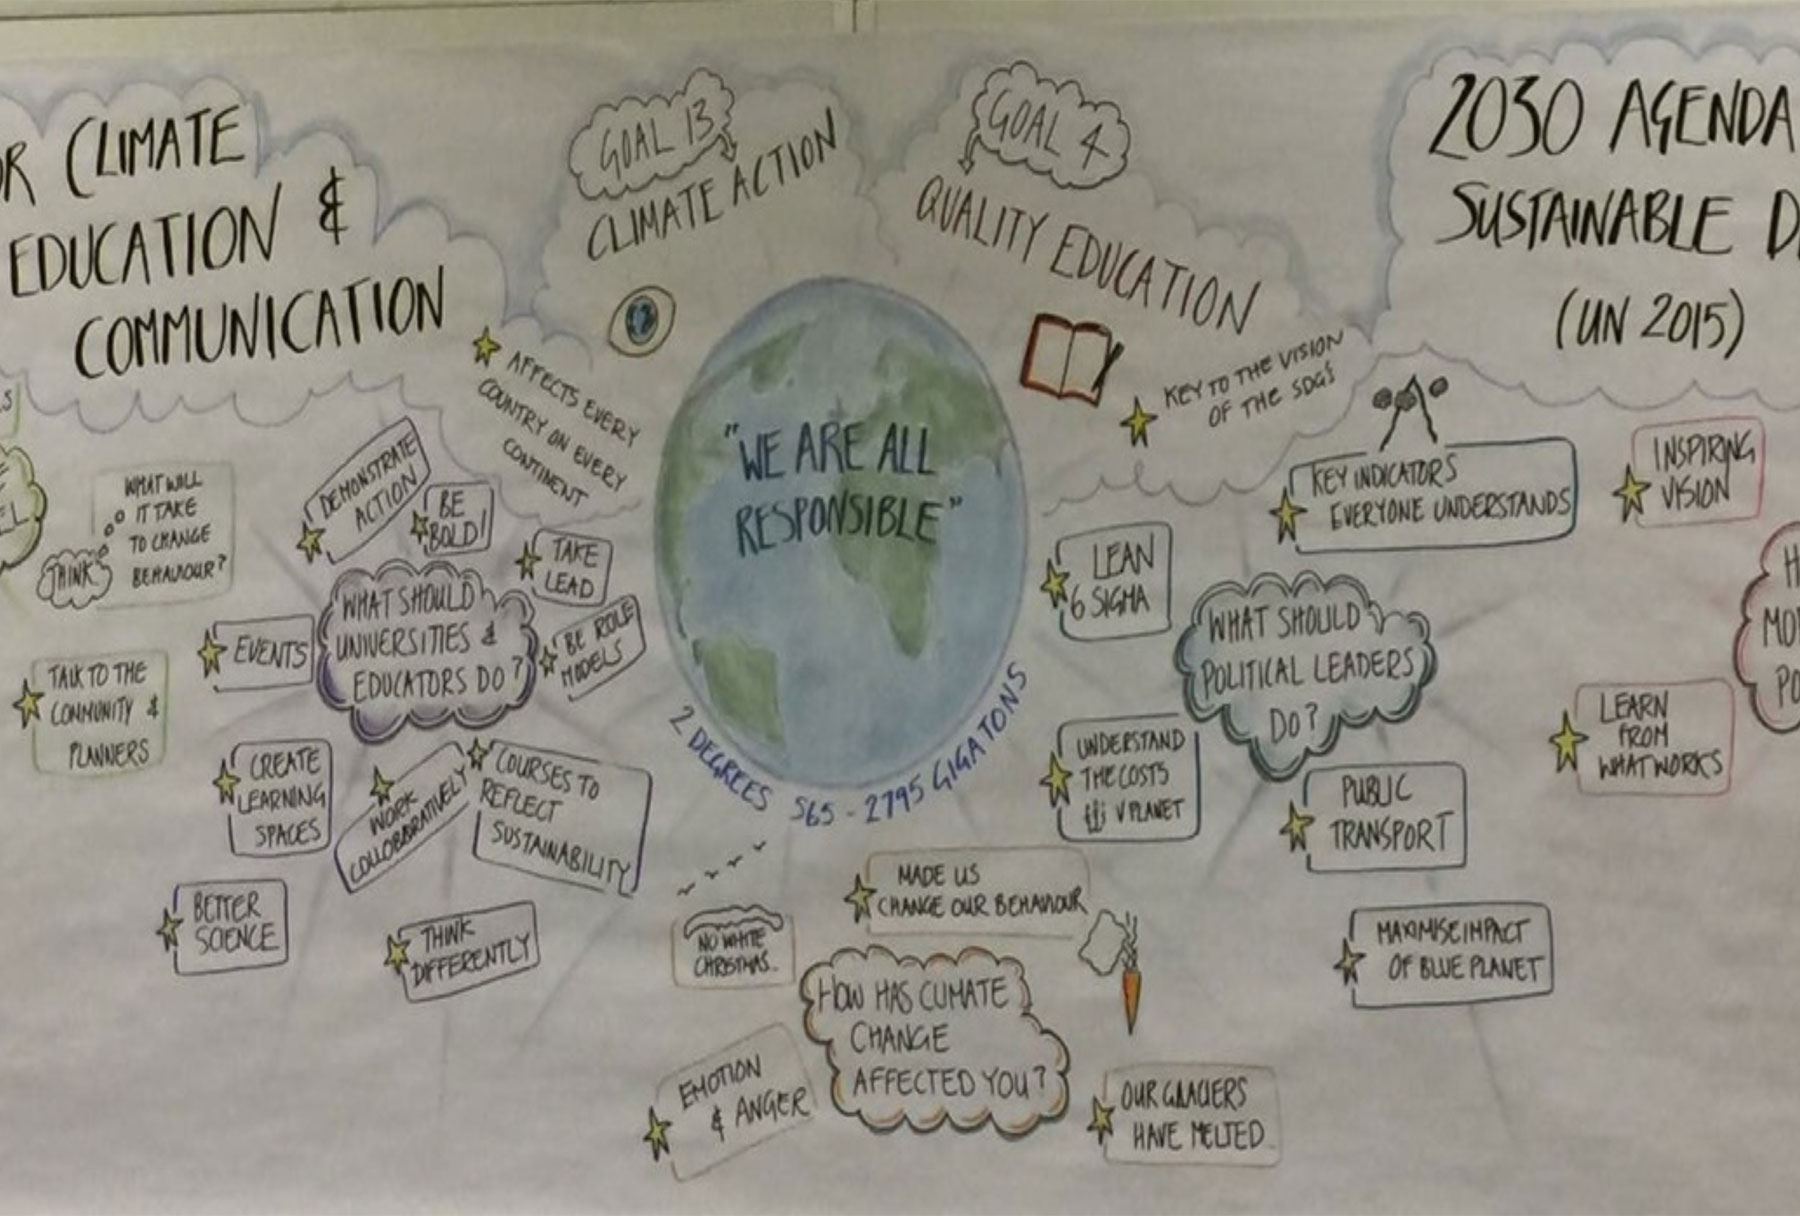 CLIMATE
EDUCATION &
COMMUNICATION
GOAL 13
CLIMATE ACTION
AFFECTS EVERY
COUNTRY ON EVERY
CONTINENT
GOAL 4
QUALITY EDUCATION
KEY TO THE VISION
OF THE SDGS
2030 AGENDA
SUSTAINABLE D
(UN 2015)
"WE ARE ALL
RESPONSIBLE"
2 DEGREES 565 - 2795 GIGATONS
THINK
WHAT WILL
IT TAKE
TO CHANGE
BEHAVIOUR?
TALK TO THE
COMMUNITY &
PLANNERS
WHAT SHOULD
UNIVERSITIES &
EDUCATORS DO?
DEMONSTRATE
ACTION
BE
BOLD!
TAKE
LEAD
BE ROLE
MODELS
EVENTS
CREATE
LEARNING
SPACES
WORK
COLLOBARATIVELY
COURSES TO
REFLECT
SUSTAINABILITY
BETTER
SCIENCE
THINK
DIFFERENTLY
WHAT SHOULD
POLITICAL LEADERS
DO?
KEY INDICATORS
EVERYONE UNDERSTANDS
LEAN
6 SIGMA
UNDERSTAND
THE COSTS
V PLANET
PUBLIC
TRANSPORT
MAXIMISE IMPACT
OF BLUE PLANET
INSPIRING
VISION
LEARN
FROM
WHAT WORKS
HOW HAS CLIMATE
CHANGE
AFFECTED YOU?
MADE US
CHANGE OUR BEHAVIOUR
NO WHITE
CHRISTMAS..
EMOTION
& ANGER
OUR GLACIERS
HAVE MELTED